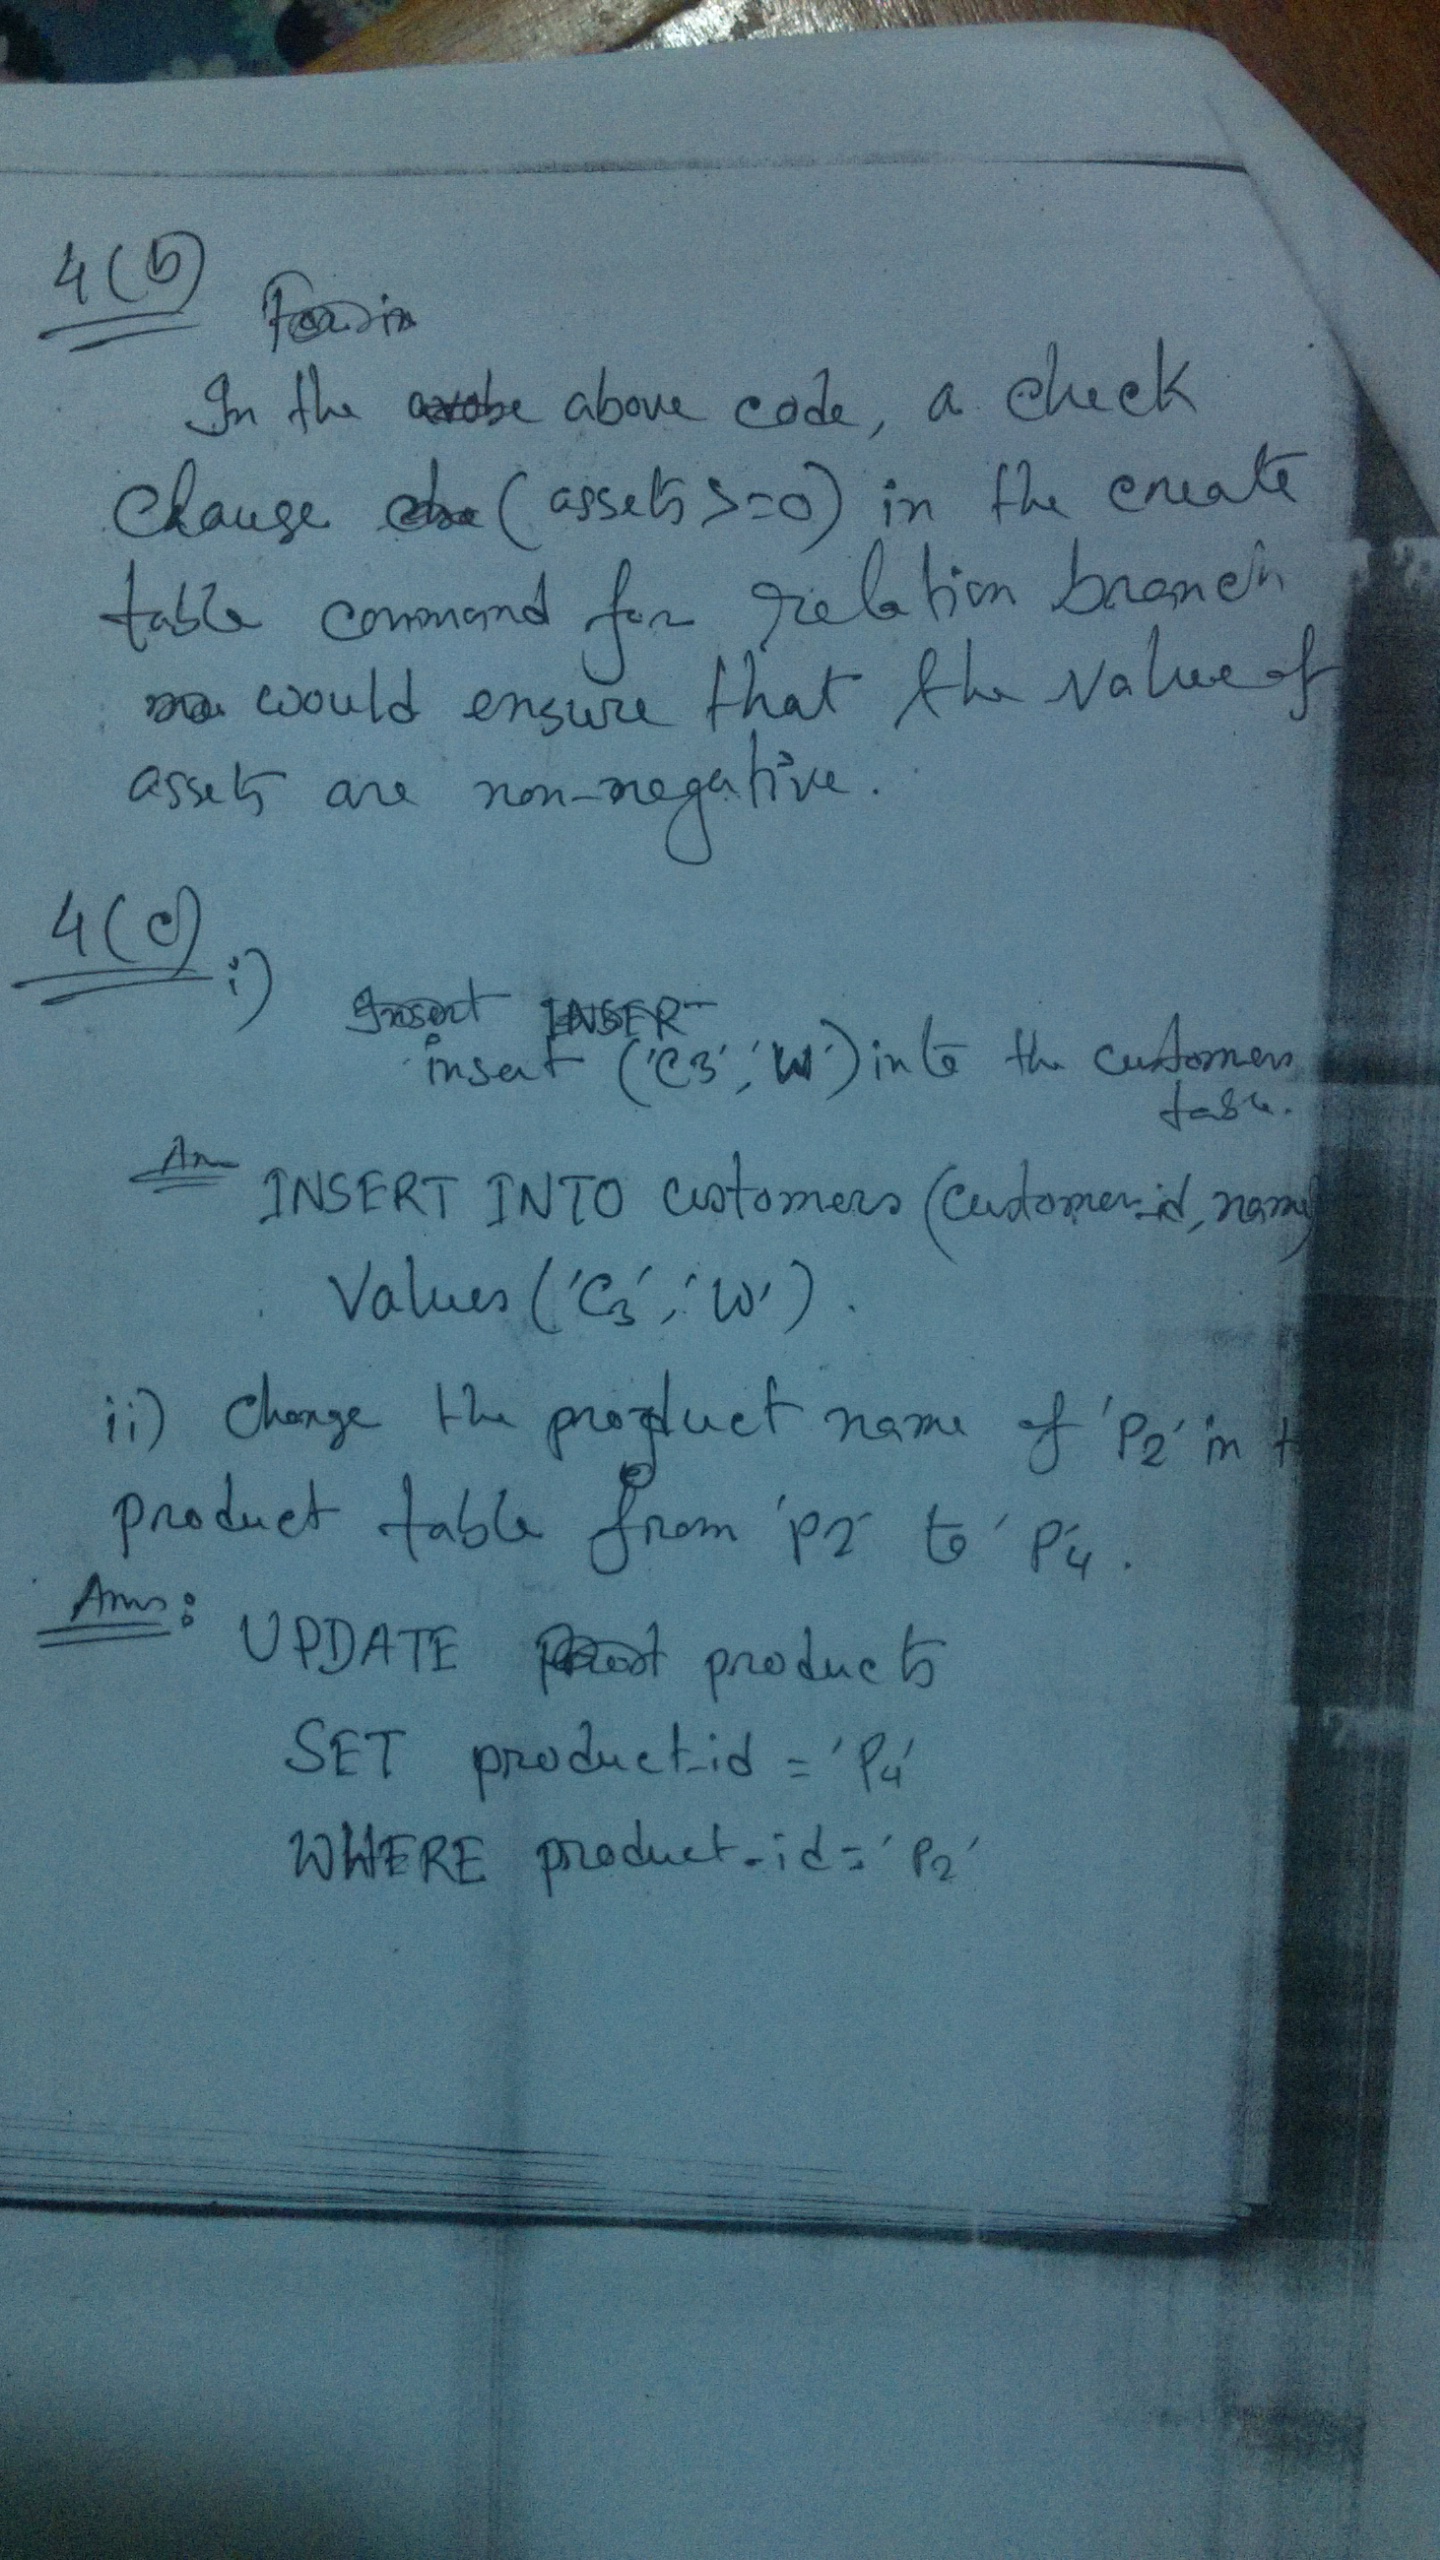 4(b)
In the above code, a check
clause (assets >=0) in the create
table command for relation branch
would ensure that the value of
assets are non-negative.
4(c)
i) Insert INSERT
insert ('C3', 'W') into the customers
table.
Ans INSERT INTO customers (customer_id, name)
Values ('C3', 'W').
ii) Change the product name of 'P2' in t
product table from 'P2' to 'P4.
Ans: UPDATE products
SET product_id = 'P4'
WHERE product_id = 'P2'